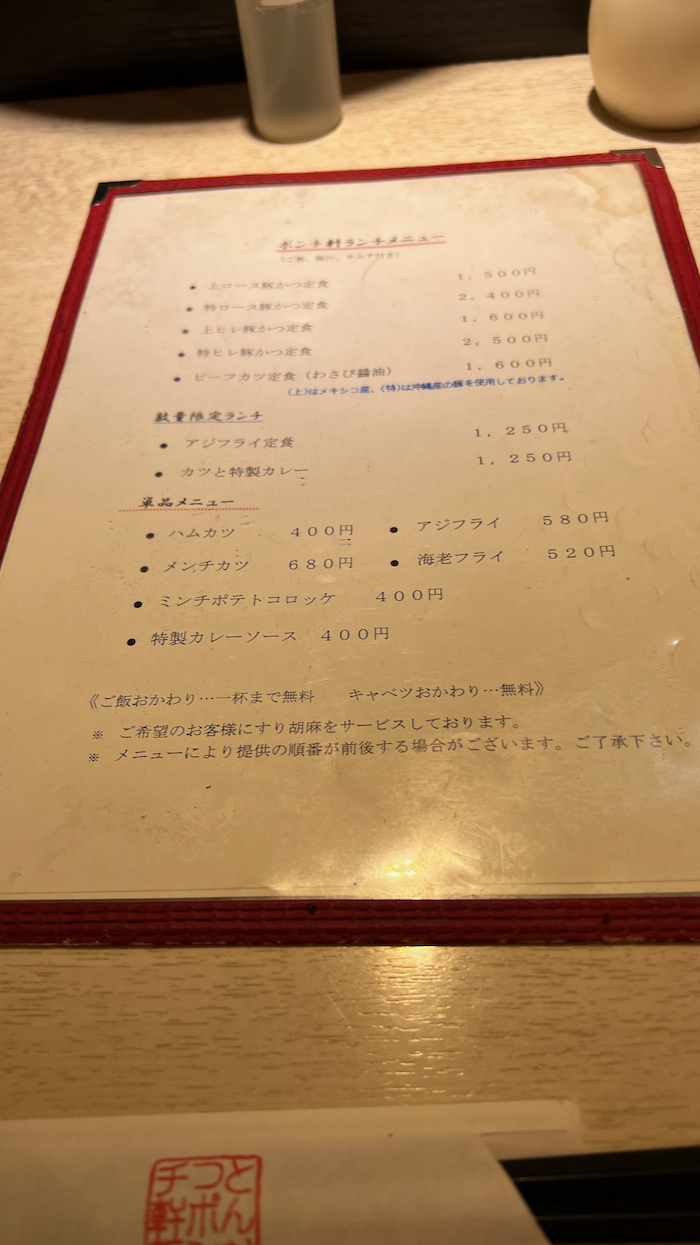 ポンチ軒ランチメニュー
(ご飯、豚汁、キムチ付き)
● 上ロース豚かつ定食 1，500円
● 特ロース豚かつ定食 2，400円
● 上ヒレ豚かつ定食 1，600円
● 特ヒレ豚かつ定食 2，500円
● ビーフカツ定食（わさび醤油） 1，600円
(上)はメキシコ産、(特)は沖縄産の豚を使用しております。
数量限定ランチ
● アジフライ定食 1，250円
● カツと特製カレー 1，250円
単品メニュー
● ハムカツ 400円 ● アジフライ 580円
● メンチカツ 680円 ● 海老フライ 520円
● ミンチポテトコロッケ 400円
● 特製カレーソース 400円
《ご飯おかわり…一杯まで無料 キャベツおかわり…無料》
※ ご希望のお客様にすり胡麻をサービスしております。
※ メニューにより提供の順番が前後する場合がございます。ご了承下さい。
とん
つポ
チ軒